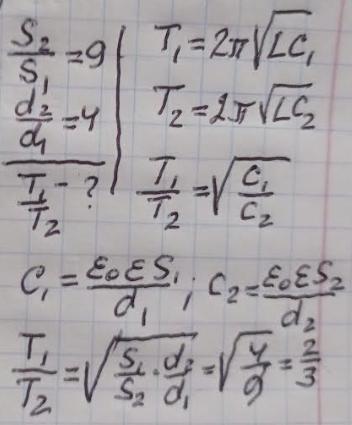 S₂/S₁ = 9
d₂/d₁ = 4
T₁/T₂ - ?
T₁ = 2π√LC₁
T₂ = 2π√LC₂
T₁/T₂ = √(C₁/C₂)
C₁ = ε₀εS₁/d₁ ; C₂ = ε₀εS₂/d₂
T₁/T₂ = √(S₁/S₂ · d₂/d₁) = √(4/9) = 2/3